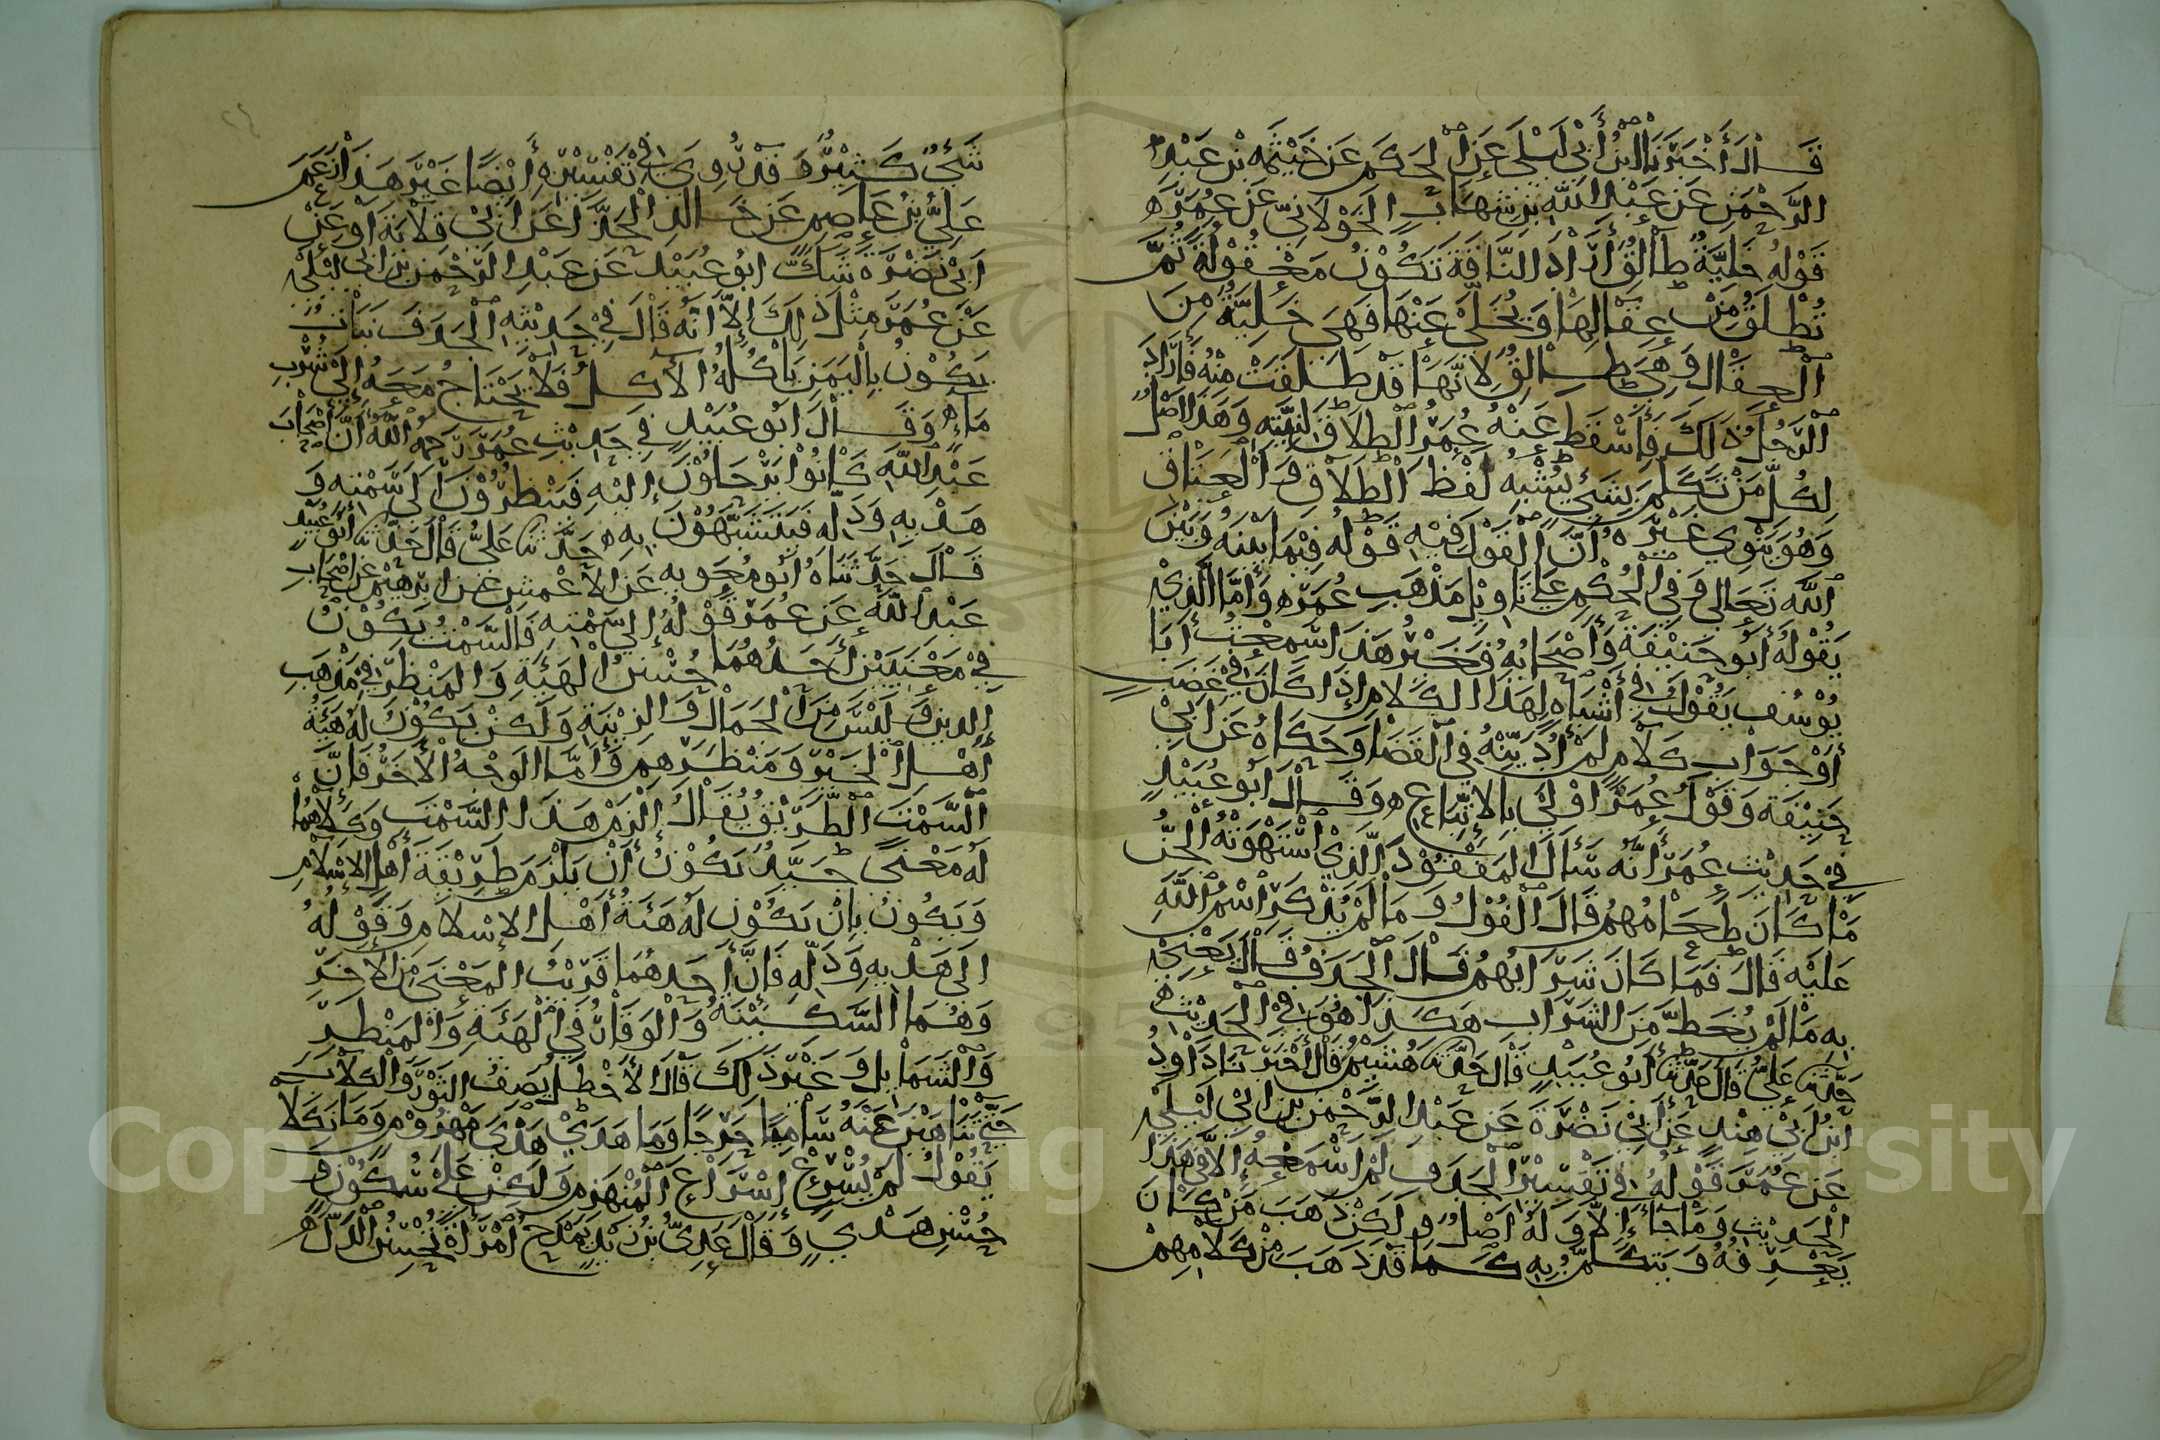 قَالَ أَخْبَرَنَا ابْنُ أَبِي لَيْلَى عَنِ الحَكَمِ عَنْ خَيْثَمَةَ بْنِ عَبْدِ
الرَّحْمَنِ عَنْ عَبْدِ اللَّهِ بْنِ شِهَابٍ الخَوْلَانِيِّ عَنْ عُمَرَ ه
قَوْلُهُ خَلِيَّةٌ طَالِقٌ أَرَادَ النَّاقَةَ تَكُوْنُ مَعْقُوْلَةً ثُمَّ
تُطْلَقُ مِنْ عِقَالِهَا وَيُخَلَّى عَنْهَا فَهِيَ خَلِيَّةٌ مِنَ
الْعِقَالِ وَهِيَ طَالِقٌ لِأَنَّهَا قَدْ طَلَقَتْ مِنْهُ فَأَرَادَ
الرَّجُلُ ذَلِكَ فَأَسْقَطَ عَنْهُ عُمَرُ الطَّلَاقَ لِنِيَّتِهِ وَهَذَا أَصْلٌ
لِكُلِّ مَنْ تَكَلَّمَ بِشَيْءٍ يُشْبِهُ لَفْظَ الطَّلَاقِ وَالْعِتَاقِ
وَهُوَ يَنْوِي غَيْرَهُ أَنَّ الْقَوْلَ فِيْهِ قَوْلُهُ فِيْمَا بَيْنَهُ وَبَيْنَ
اللَّهِ تَعَالَى وَفِي الْحُكْمِ عَلَى تَاوِيْلِ مَذْهَبِ عُمَرَ ه وَأَمَّا الَّذِيْ
يَقُوْلُهُ أَبُو حَنِيْفَةَ وَأَصْحَابُهُ فَغَيْرُ هَذَا سَمِعْتُ أَبَا
يُوْسُفَ يَقُوْلُ فِي أَشْبَاهٍ لِهَذَا الكَلَامِ إِذَا كَانَ فِي غَضَبٍ
أَوْ جَوَابِ كَلَامٍ لَمْ أُدَيِّنْهُ فِي الْقَضَا وَحَكَاهُ عَنْ أَبِيْ
حَنِيْفَةَ وَقَوْلُ عُمَرَ أَوْلَى بِالاتِّبَاعِ ه وَقَالَ أَبُو عُبَيْدٍ
فِيْ حَدِيْثِ عُمَرَ أَنَّهُ سَأَلَ المَفْقُوْدَ الَّذِي اسْتَهْوَتْهُ الْجِنُّ
مَا كَانَ طَعَامُهُمْ قَالَ الْفُوْلُ وَمَا لَمْ يُذْكَرِ اسْمُ اللَّهِ
عَلَيْهِ قَالَ فَمَا كَانَ شَرَابُهُمْ قَالَ الْجَدَفُ قَالَ يَعْنِيْ
بِهِ مَا لَمْ يُغَطَّ مِنَ الشَّرَابِ هَكَذَا هُوَ فِي الْحَدِيْثِ ه
حَدَّثَنَا عَلِيٌّ قَالَ حَدَّثَنَا أَبُو عُبَيْدٍ قَالَ حَدَّثَنَاهُ هُشَيْمٌ قَالَ أَخْبَرَنَا دَاوُدُ
ابْنُ أَبِي هِنْدٍ عَنْ أَبِي نَضْرَةَ عَنْ عَبْدِ الرَّحْمَنِ بْنِ أَبِي لَيْلَى
عَنْ عُمَرَ قَوْلُهُ فِي تَفْسِيْرِ الْجَدَفِ لَمْ أَسْمَعْهُ إِلَّا فِي هَذَا
الْحَدِيْثِ وَمَا جَاءَ إِلَّا وَلَهُ أَصْلٌ وَلَكِنْ ذَهَبَ مَنْ كَانَ
يَعْرِفُهُ وَيَتَكَلَّمُ بِهِ كَمَا قَدْ ذَهَبَ مِنْ كَلَامِهِمْ
شَيْءٌ كَثِيْرٌ وَقَدْ رُوِيَ فِي تَفْسِيْرِهِ أَيْضًا غَيْرُ هَذَا زَعَمَ
عَلِيُّ بْنُ عَاصِمٍ عَنْ خَالِدٍ الْحَذَّاءِ عَنْ أَبِي قِلَابَةَ أَوْ عَنْ
أَبِيْ نَضْرَةَ شَكَّ أَبُو عُبَيْدٍ عَنْ عَبْدِ الرَّحْمَنِ بْنِ أَبِي لَيْلَى
عَنْ عُمَرَ مِثْلَ ذَلِكَ إِلَّا أَنَّهُ قَالَ فِيْ حَدِيْثِهِ الْجَدَفُ نَبَاتٌ
يَكُوْنُ بِالْيَمَنِ يَأْكُلُهُ الآكِلُ فَلَا يَحْتَاجُ مَعَهُ إِلَى شُرْبِ
مَاءٍ ه وَقَالَ أَبُو عُبَيْدٍ فِي حَدِيْثِ عُمَرَ رَحِمَهُ اللَّهُ أَنَّ أَصْحَابَ
عَبْدِ اللَّهِ كَانُوْا يَرْحَلُوْنَ إِلَيْهِ فَيَنْظُرُوْنَ إِلَى سَمْتِهِ وَ
هَدْيِهِ وَدَلِّهِ فَيَتَشَبَّهُوْنَ بِهِ ه حَدَّثَنَا عَلِيٌّ قَالَ حَدَّثَنَا أَبُو عُبَيْدٍ
قَالَ حَدَّثَنَاهُ أَبُو مُعَوِيَةَ عَنِ الأَعْمَشِ عَنْ إِبْرَهِيْمَ عَنْ أَصْحَابِ
عَبْدِ اللَّهِ عَنْ عُمَرَ قَوْلُهُ إِلَى سَمْتِهِ فَالسَّمْتُ يَكُوْنُ
فِيْ مَعْنَيَيْنِ أَحَدُهُمَا حُسْنُ الْهَيْئَةِ وَالمَنْظَرِ فِي مَذْهَبِ
الدِّيْنِ وَلَيْسَ مِنَ الْجَمَالِ وَالزِّيْنَةِ وَلَكِنْ يَكُوْنُ لَهُ هَيْئَةُ
أَهْلِ الْخَيْرِ وَمَنْظَرُهُمْ وَأَمَّا الوَجْهُ الْآخَرُ فَإِنَّ
السَّمْتَ الطَّرِيْقُ يُقَالُ الْزَمْ هَذَا السَّمْتَ وَكِلَاهُمَا
لَهُ مَعْنًى جَيِّدٌ يَكُوْنُ أَنْ يَلْزَمَ طَرِيْقَةَ أَهْلِ الإِسْلَامِ
وَيَكُوْنُ بِأَنْ يَكُوْنَ لَهُ هَيْئَةُ أَهْلِ الإِسْلَامِ وَقَوْلُهُ
إِلَى هَدْيِهِ وَدَلِّهِ فَإِنَّ أَحَدَهُمَا قَرِيْبُ المَعْنَى مِنَ الآخَرِ
وَهُمَا السَّكِيْنَةُ وَالْوَقَارُ فِي الْهَيْئَةِ وَالْمَنْظَرِ
وَالشَّمَايِلِ وَغَيْرِ ذَلِكَ قَالَ الأَخْطَلُ يَصِفُ الثَّوْرَ وَالْكِلَابَ
حَتَّى تَنَاهَيْنَ عَنْهُ سَامِيًا حَرِجًا وَمَا هَدَى هَدْيَ مَهْزُوْمٍ وَمَا نَكَلَا
يَقُوْلُ لَمْ يُسْرِعْ إِسْرَاعَ الْمُنْهَزِمِ وَلَكِنْ عَلَى سُكُوْنٍ وَ
حُسْنِ هَدْيٍ وَقَالَ عَدِيُّ بْنُ زَيْدٍ يَمْدَحُ امْرَأَةً بِحُسْنِ الدَّلِّ ه